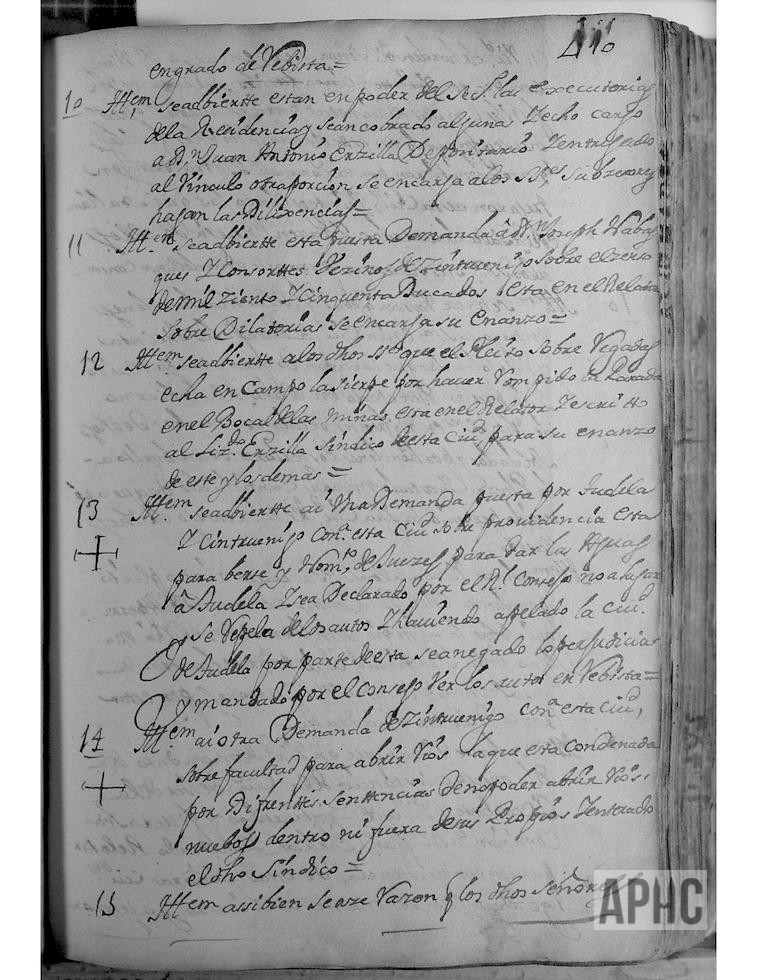 engrado de Vebista=
10 Ittem seadbiertte estan en poder del Se S. las executorias
dela Residencia y sean cobrado alguna Yecho cargo
a Dn Juan Antonio Erzilla Depositario Yentregado
al Vinculo otra porcion se encarga alos SSes Subzesores
hagan las Dilixencias=
11 Ittem seadbiertte esta puesta Demanda a Dn Joseph Nabas
ques Y Consorttes Vezinos de Zintruenigo sobre el zenso
de mil Ziento Y Cinquenta Ducados esta en el Relator
sobre Dilatorias se encarga su enanzo=
12 Ittem seadbiertte alos dhos SSes que el Pleito sobre Vegadas
echa en Campo la sierpe por hauer Rompido la Parada
en el Bocal delas minas esta en el Relator Yescritto
al Lizdo Erzilla sindico deesta Ciud para su enanzo
de este y los demas=
13 Ittem seadbiertte ai Vna Demanda puesta por Tudela
Y Cintruenigo Conª esta Ciud sobre providencia esta
para berse y Nomto de Juezes para dar las Aguas
a Tudela Ysea Declarado por el Rl Consejo no a lugar
se Repela delos autos Yhauiendo apelado la Ciud
de Tudela por parte deesta seanegado lo perjudicial
y mandado por el consejo Ver los autos en Vebista=
14 Ittem ai otra Demanda de Zintruenigo conª esta Ciud,
sobre facultad para abrir Rios laque esta Condenada
por Difrenttes senttencias de no poder abrir Rios
nuebos dentro ni fuera de sus Propios Yenterado
el dho Síndico=
15 Ittem assibien seaze Razon q los dhos señores
APHC